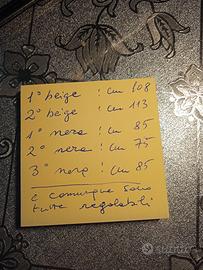 1° beige : cm 108
2° beige : cm 113
1° nera : cm 85
2° nera : cm 75
3° nera : cm 85
e comunque sono
tutte regolabili
subito